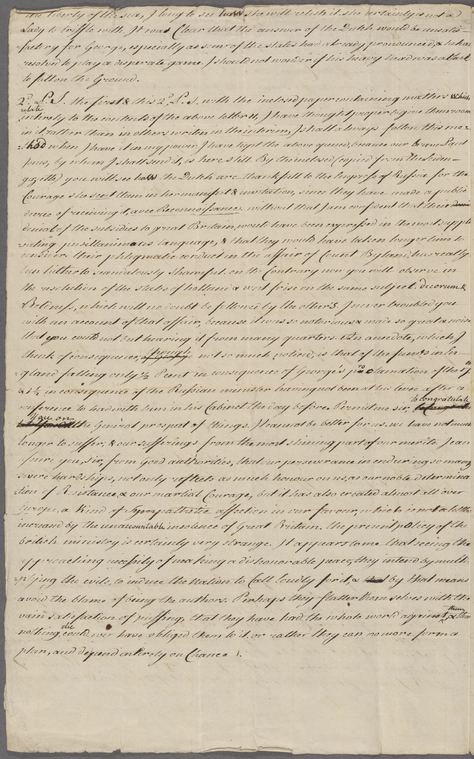 the liberty of the sea, I long to see how she will relish it she certainly is not a
Lady to triffle with. It was Clear that the answer of the Dutch would be unsatis-
factory for George, especially as some of the states had already pronounced, & he has
resolved to play a desperate game. I should not wonder if his heavy head was
to fall on the Ground.
2d. P.S. the first & this 2d. P.S. with the inclosed paper containing matters which
relate
entirely to the contents of the above letter, I have thought proper to give them room
in it rather than in others written in the interim, I shall always follow this me-
thod when I have it in my power. I have kept the above open, because our
by whom I shall send it, is here still. By the inclosed, copied from the
gazette you will see how the Dutch are thankful to the Empress of Russia for the
Courage she sent them in her manifest & invitation, since they have made a public
decree of receiving it, avec Reconnoissance, without that I am confident that their
denial of the subsidies to great Britain, would have been expressed in the most supple
pusillanimous language, & that they would have taken longer time to
consider their phlegmatic conduct in the affair of Count Byland, tis really
rather scandalously shameful. on the Contrary now you will observe in
the resolution of the states of holland & west frise on the same subject. decorum &
which will no doubt be followed by the others. I never troubled you
with an account of that affair, because it was so notorious & made so great a noise
that you could not but hearing it from many quarters. An anecdote, which I
think of consequence, though not so much noticed, is that of the funds in En-
gland falling only ½ Pent in consequence of George's proclamation of the
& 1½ in consequence of the Russian minister having not been at his levee after a
conference he had with him in his Cabinet the day before. Permit me sir, to congratulate
you on
the general prospect of things. It cannot be better for us, we have not much
longer to suffer, & our sufferings from the most shining part of our merits. I can
assure you, sir, from good authorities, that our perseverance in enduring so many
severe hardships, not only reflects as much honour on us, as our noble determina-
tion of Resistance, & our martial Courage, but it has also created almost all over
Europe, a Kind of sympathetic affection in our favour, which is not a little
increased by the insolence of Great Britain. the present policy of the
british ministry is certainly very strange. It appears to me that seeing the
approaching necessity of making a dishonorable peace, they intend by multi-
plying the evils, to induce the Nation to Call loudly for it, & by that means
avoid the blame of being the authors. Perhaps they flatter themselves with the
vain satisfaction of puffing, that they have had the whole world against them, & that
nothing else could ever have obliged them to it. or rather they can no more form a
plan, and depend entirely on Chance.